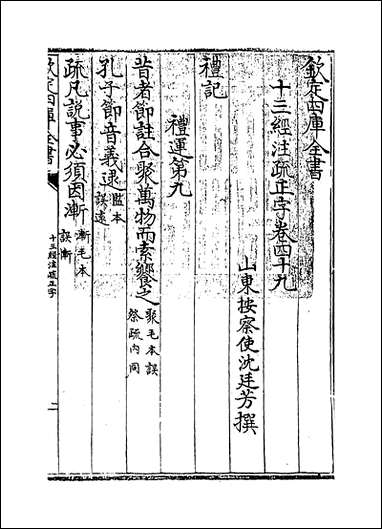 欽定四庫全書
十三經注疏正字卷四十九
山東按察使沈廷芳撰
禮記
禮運第九
昔者節註合聚萬物而索饗之聚毛本誤祭疏内同
孔子節音義逮監本誤遠
疏凡説事必須因漸漸毛本誤漸
欽定四庫全書
十三經注疏正字